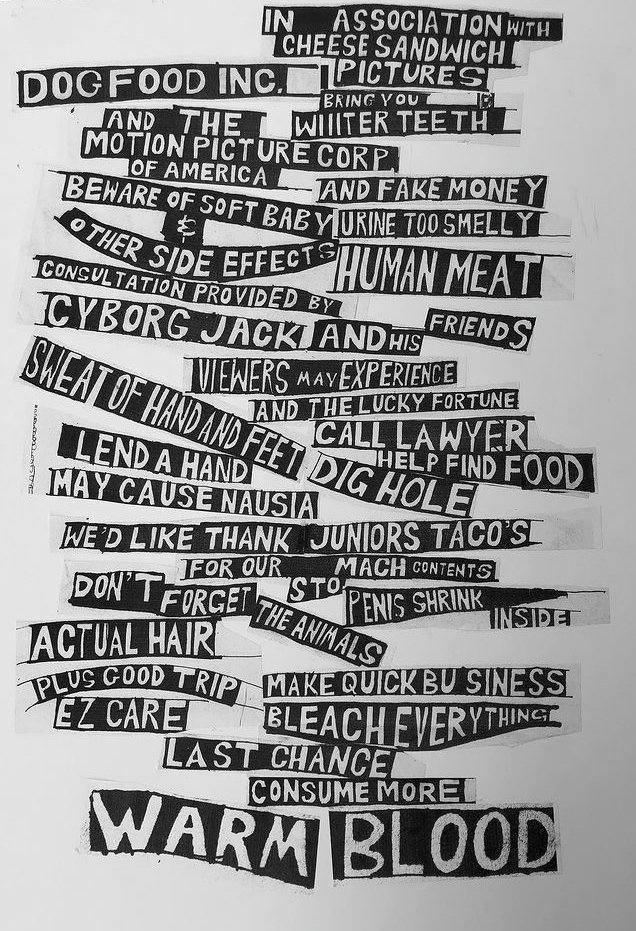 IN ASSOCIATION WITH
CHEESE SANDWICH
PICTURES
DOG FOOD INC.
BRING YOU
AND THE
WIIITER TEETH
MOTION PICTURE CORP
OF AMERICA
AND FAKE MONEY
BEWARE OF SOFT BABY
URINE TOO SMELLY
&
OTHER SIDE EFFECTS
HUMAN MEAT
CONSULTATION PROVIDED BY
CYBORG JACK AND HIS FRIENDS
VIEWERS MAY EXPERIENCE
SWEAT OF HAND AND FEET
AND THE LUCKY FORTUNE
CALL LAWYER
LEND A HAND
HELP FIND FOOD
DIG HOLE
MAY CAUSE NAUSIA
WE'D LIKE THANK JUNIORS TACO'S
FOR OUR STOMACH CONTENTS
DON'T FORGET
PENIS SHRINK
INSIDE
THE ANIMALS
ACTUAL HAIR
PLUS GOOD TRIP
MAKE QUICK BU SINESS
EZ CARE
BLEACH EVERYTHING
LAST CHANCE
CONSUME MORE
WARM BLOOD